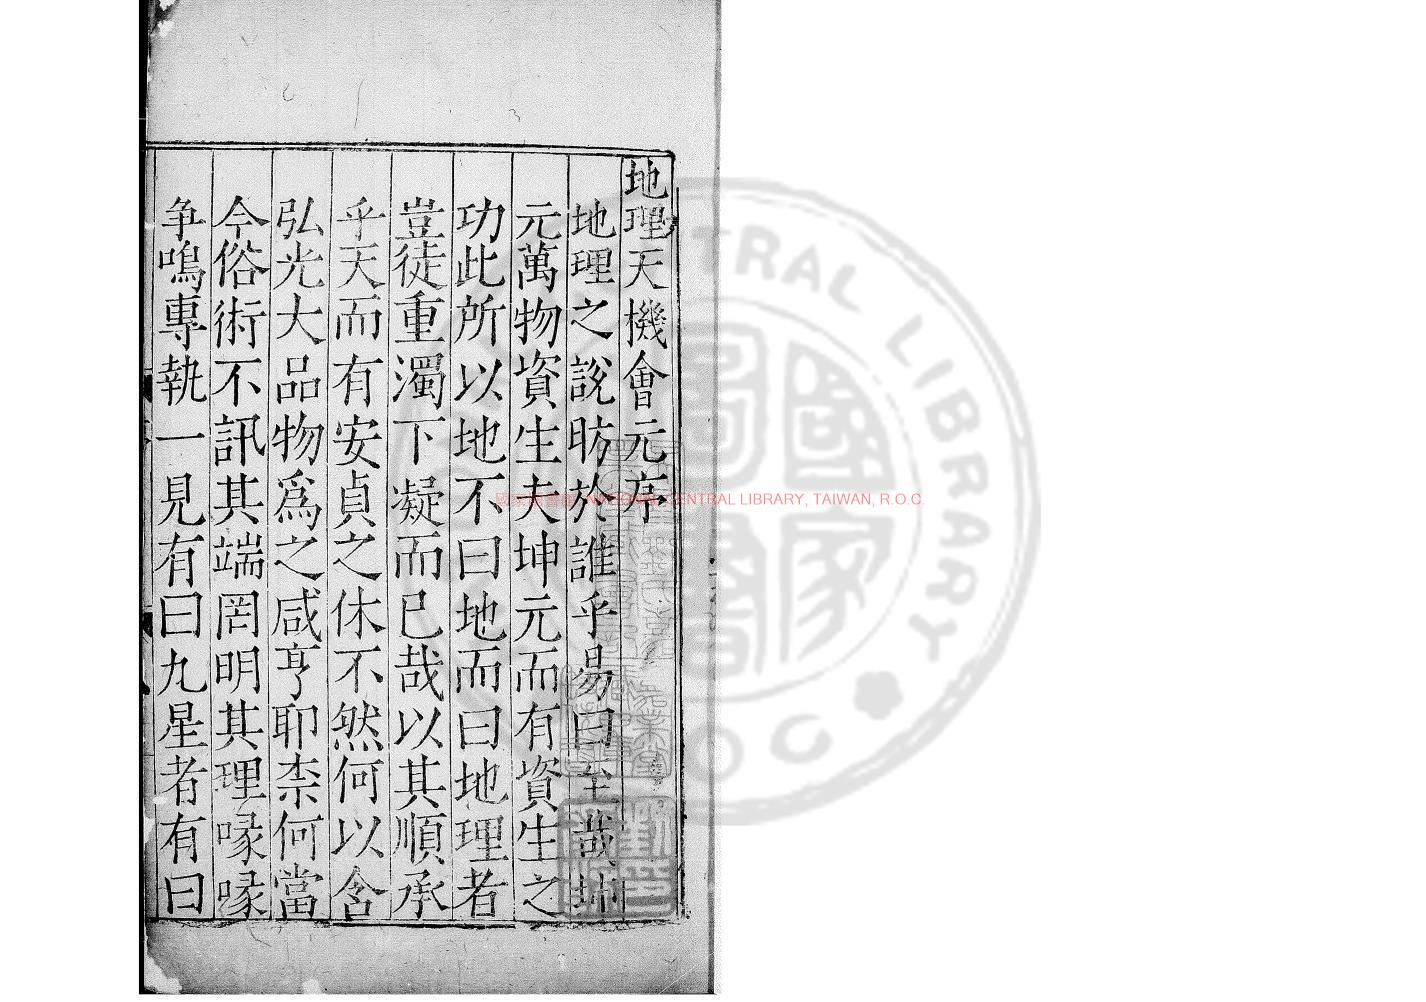 地理天機會元序
地理之說昉於誰乎易曰至哉坤
元萬物資生夫坤元而有資生之
功此所以地不曰地而曰地理者
豈徒重濁下凝而已哉以其順承
乎天而有安貞之休不然何以含
弘光大品物爲之咸亨耶柰何當
今俗術不訊其端罔明其理喙喙
争鳴專執一見有曰九星者有曰
國家圖書館 NATIONAL CENTRAL LIBRARY, TAIWAN, R.O.C.
CENTRAL LIBRARY
R.O.C.
國家圖書